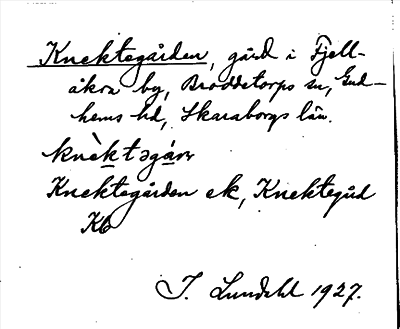 Knektegården, gård i Fjell-
åkra by, Broddetorps sn, Gud-
hems hd, Skaraborgs län.
knèktəgάɹ
Knektegården ek, Knektegård
Kb
J. Lundahl 1927.